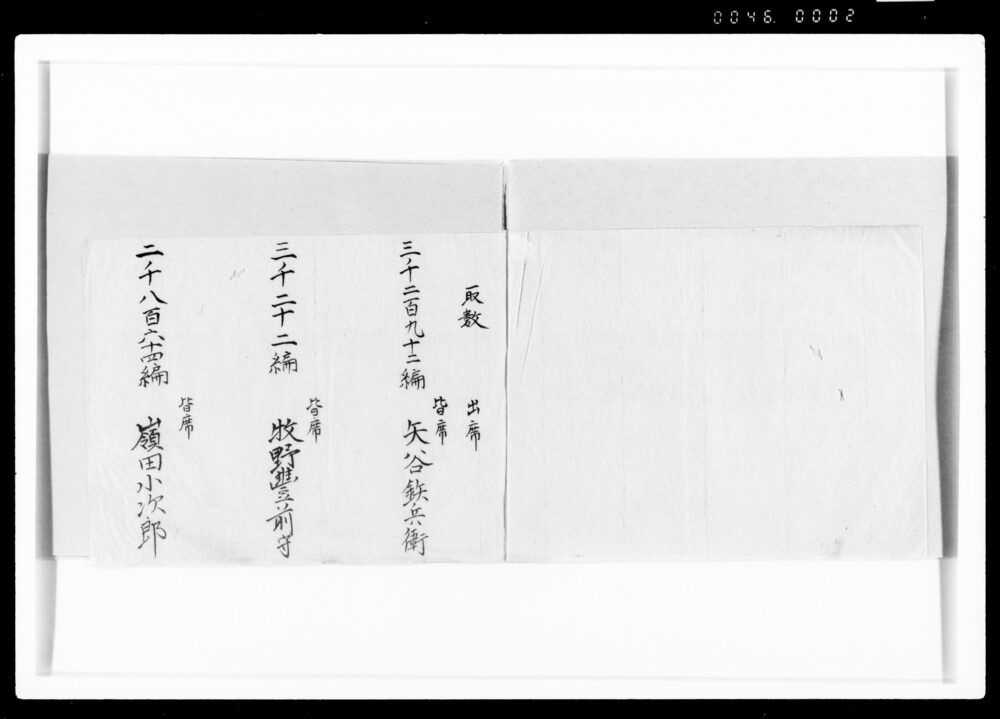 0046. 0002
取数 出席
三千二百九十二編 皆席 矢谷鉃兵衛
三千二十二編 皆席 牧野豊前守
二千八百六十四編 皆席 嶺田小次郎